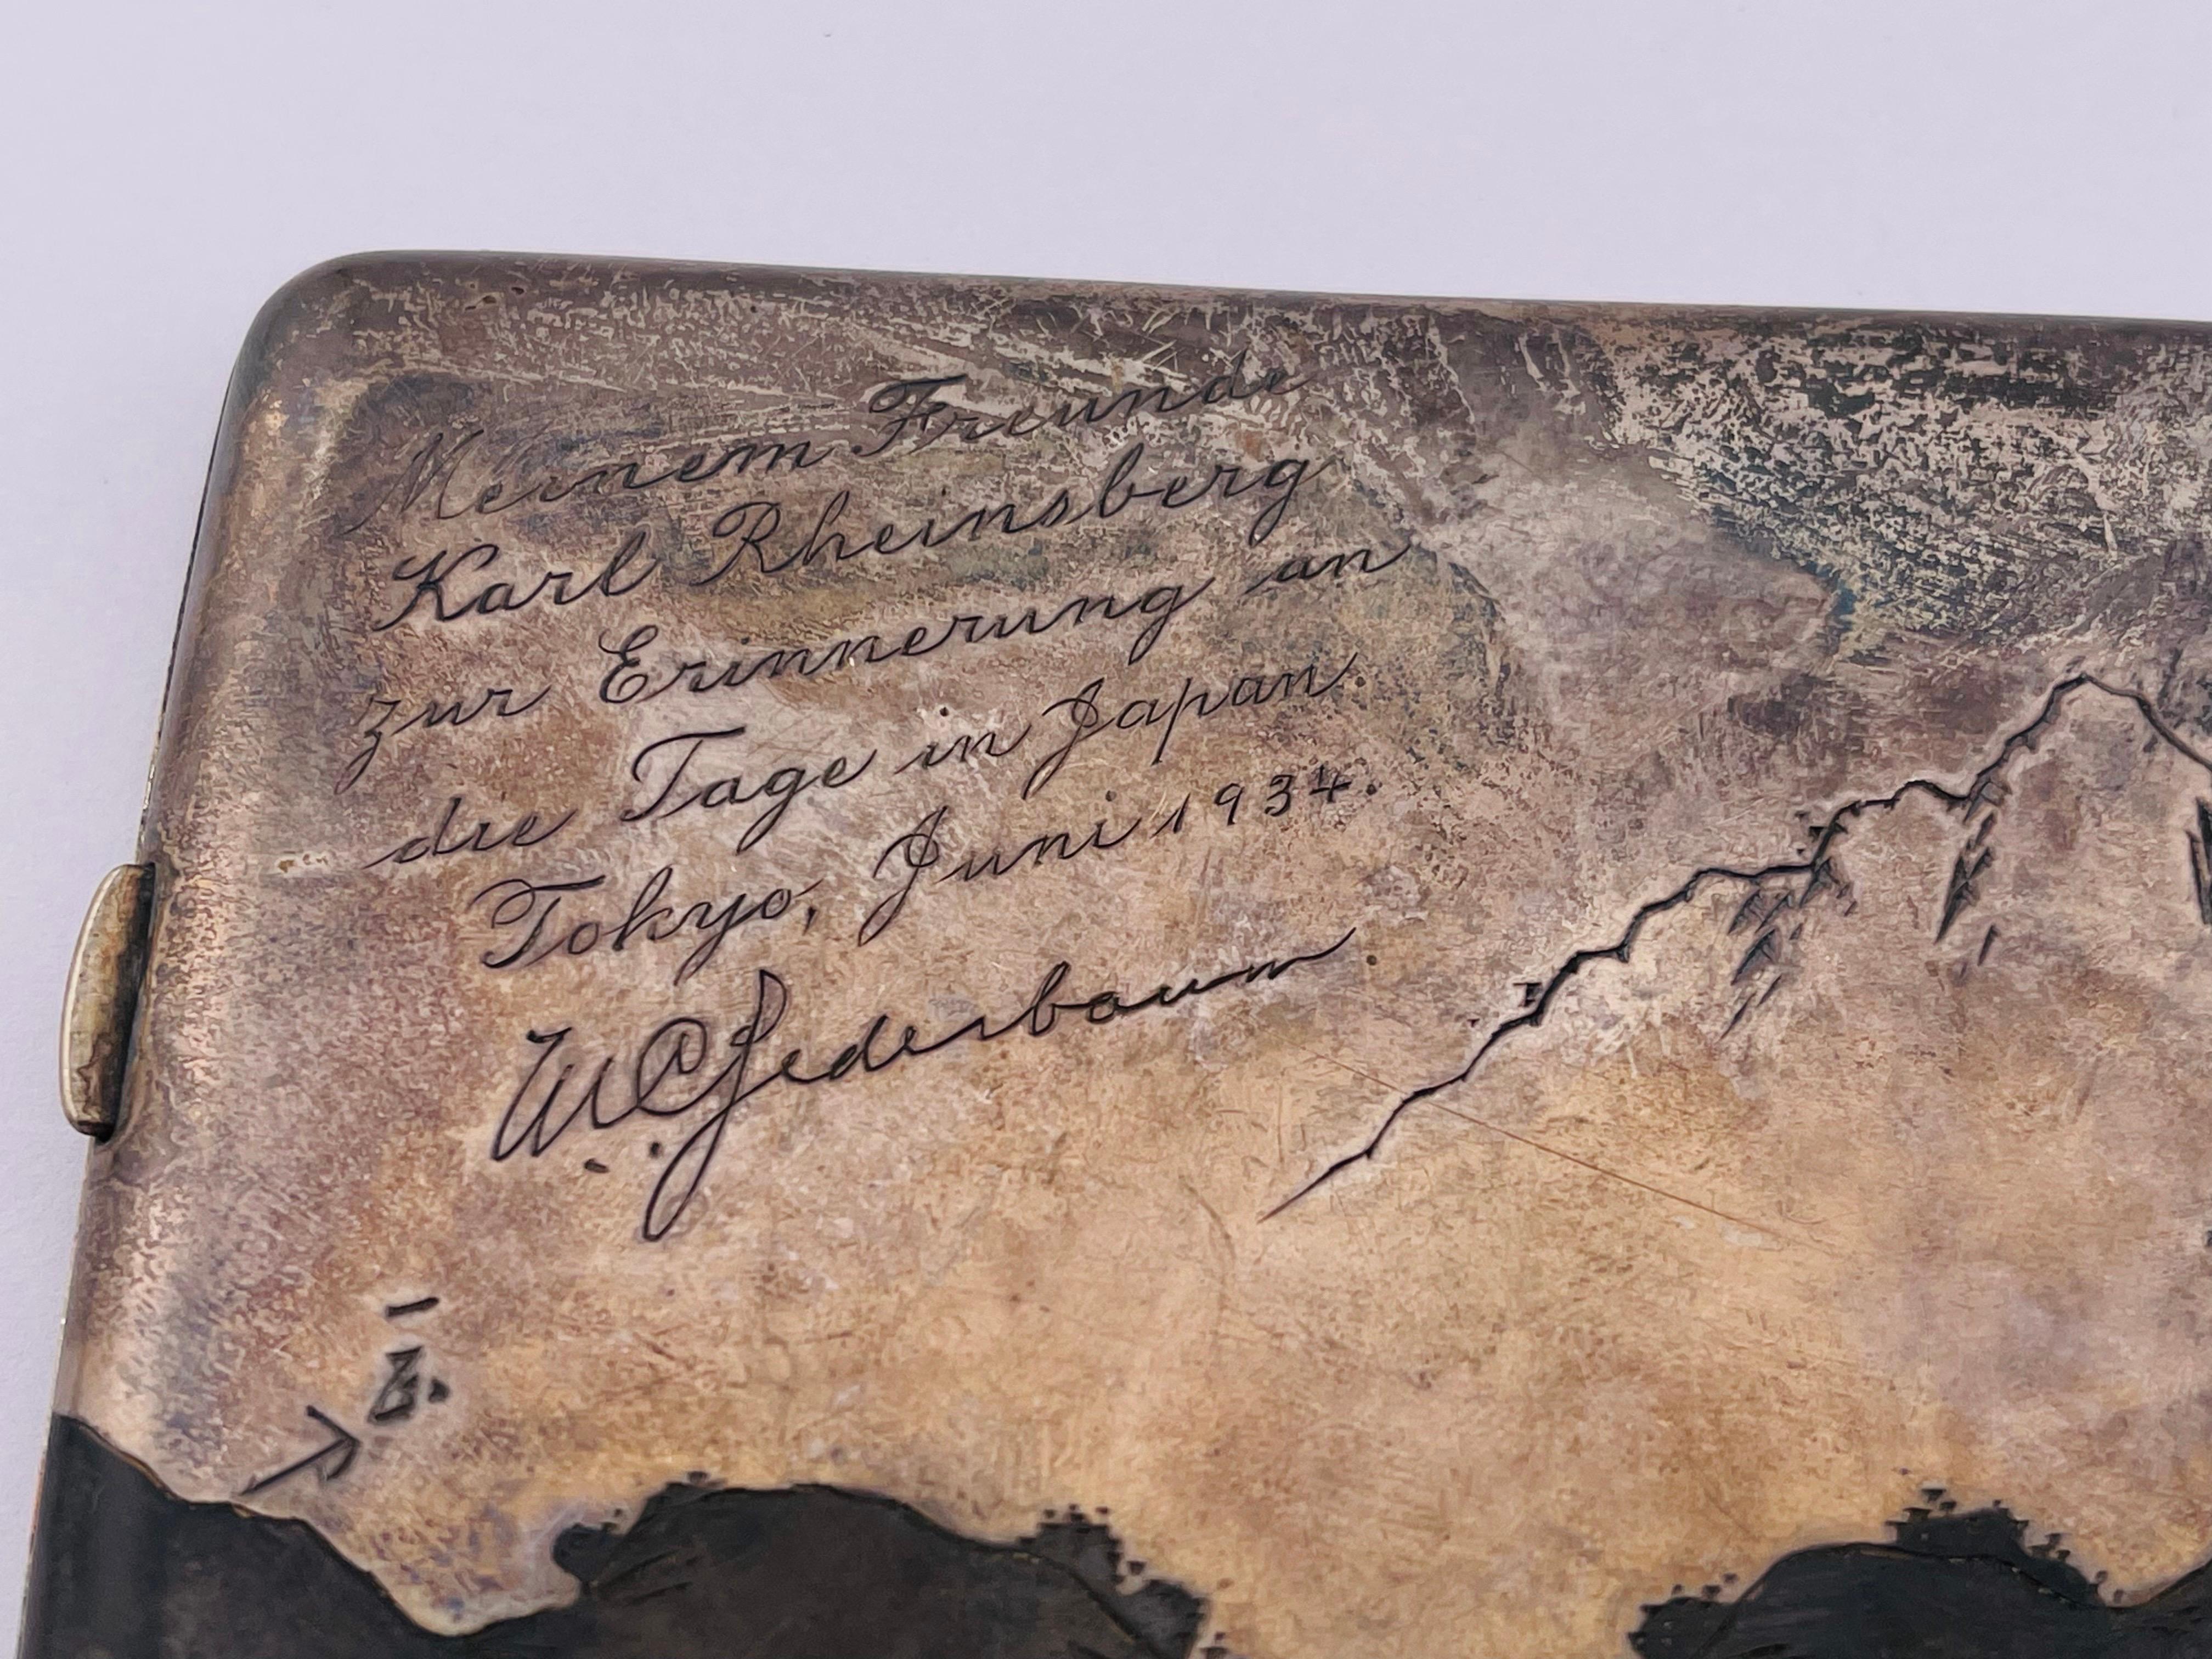 Meinem Freunde
Karl Rheinsberg
zur Erinnerung an
die Tage in Japan
Tokyo, Juni 1934.
W. C. Federbaum